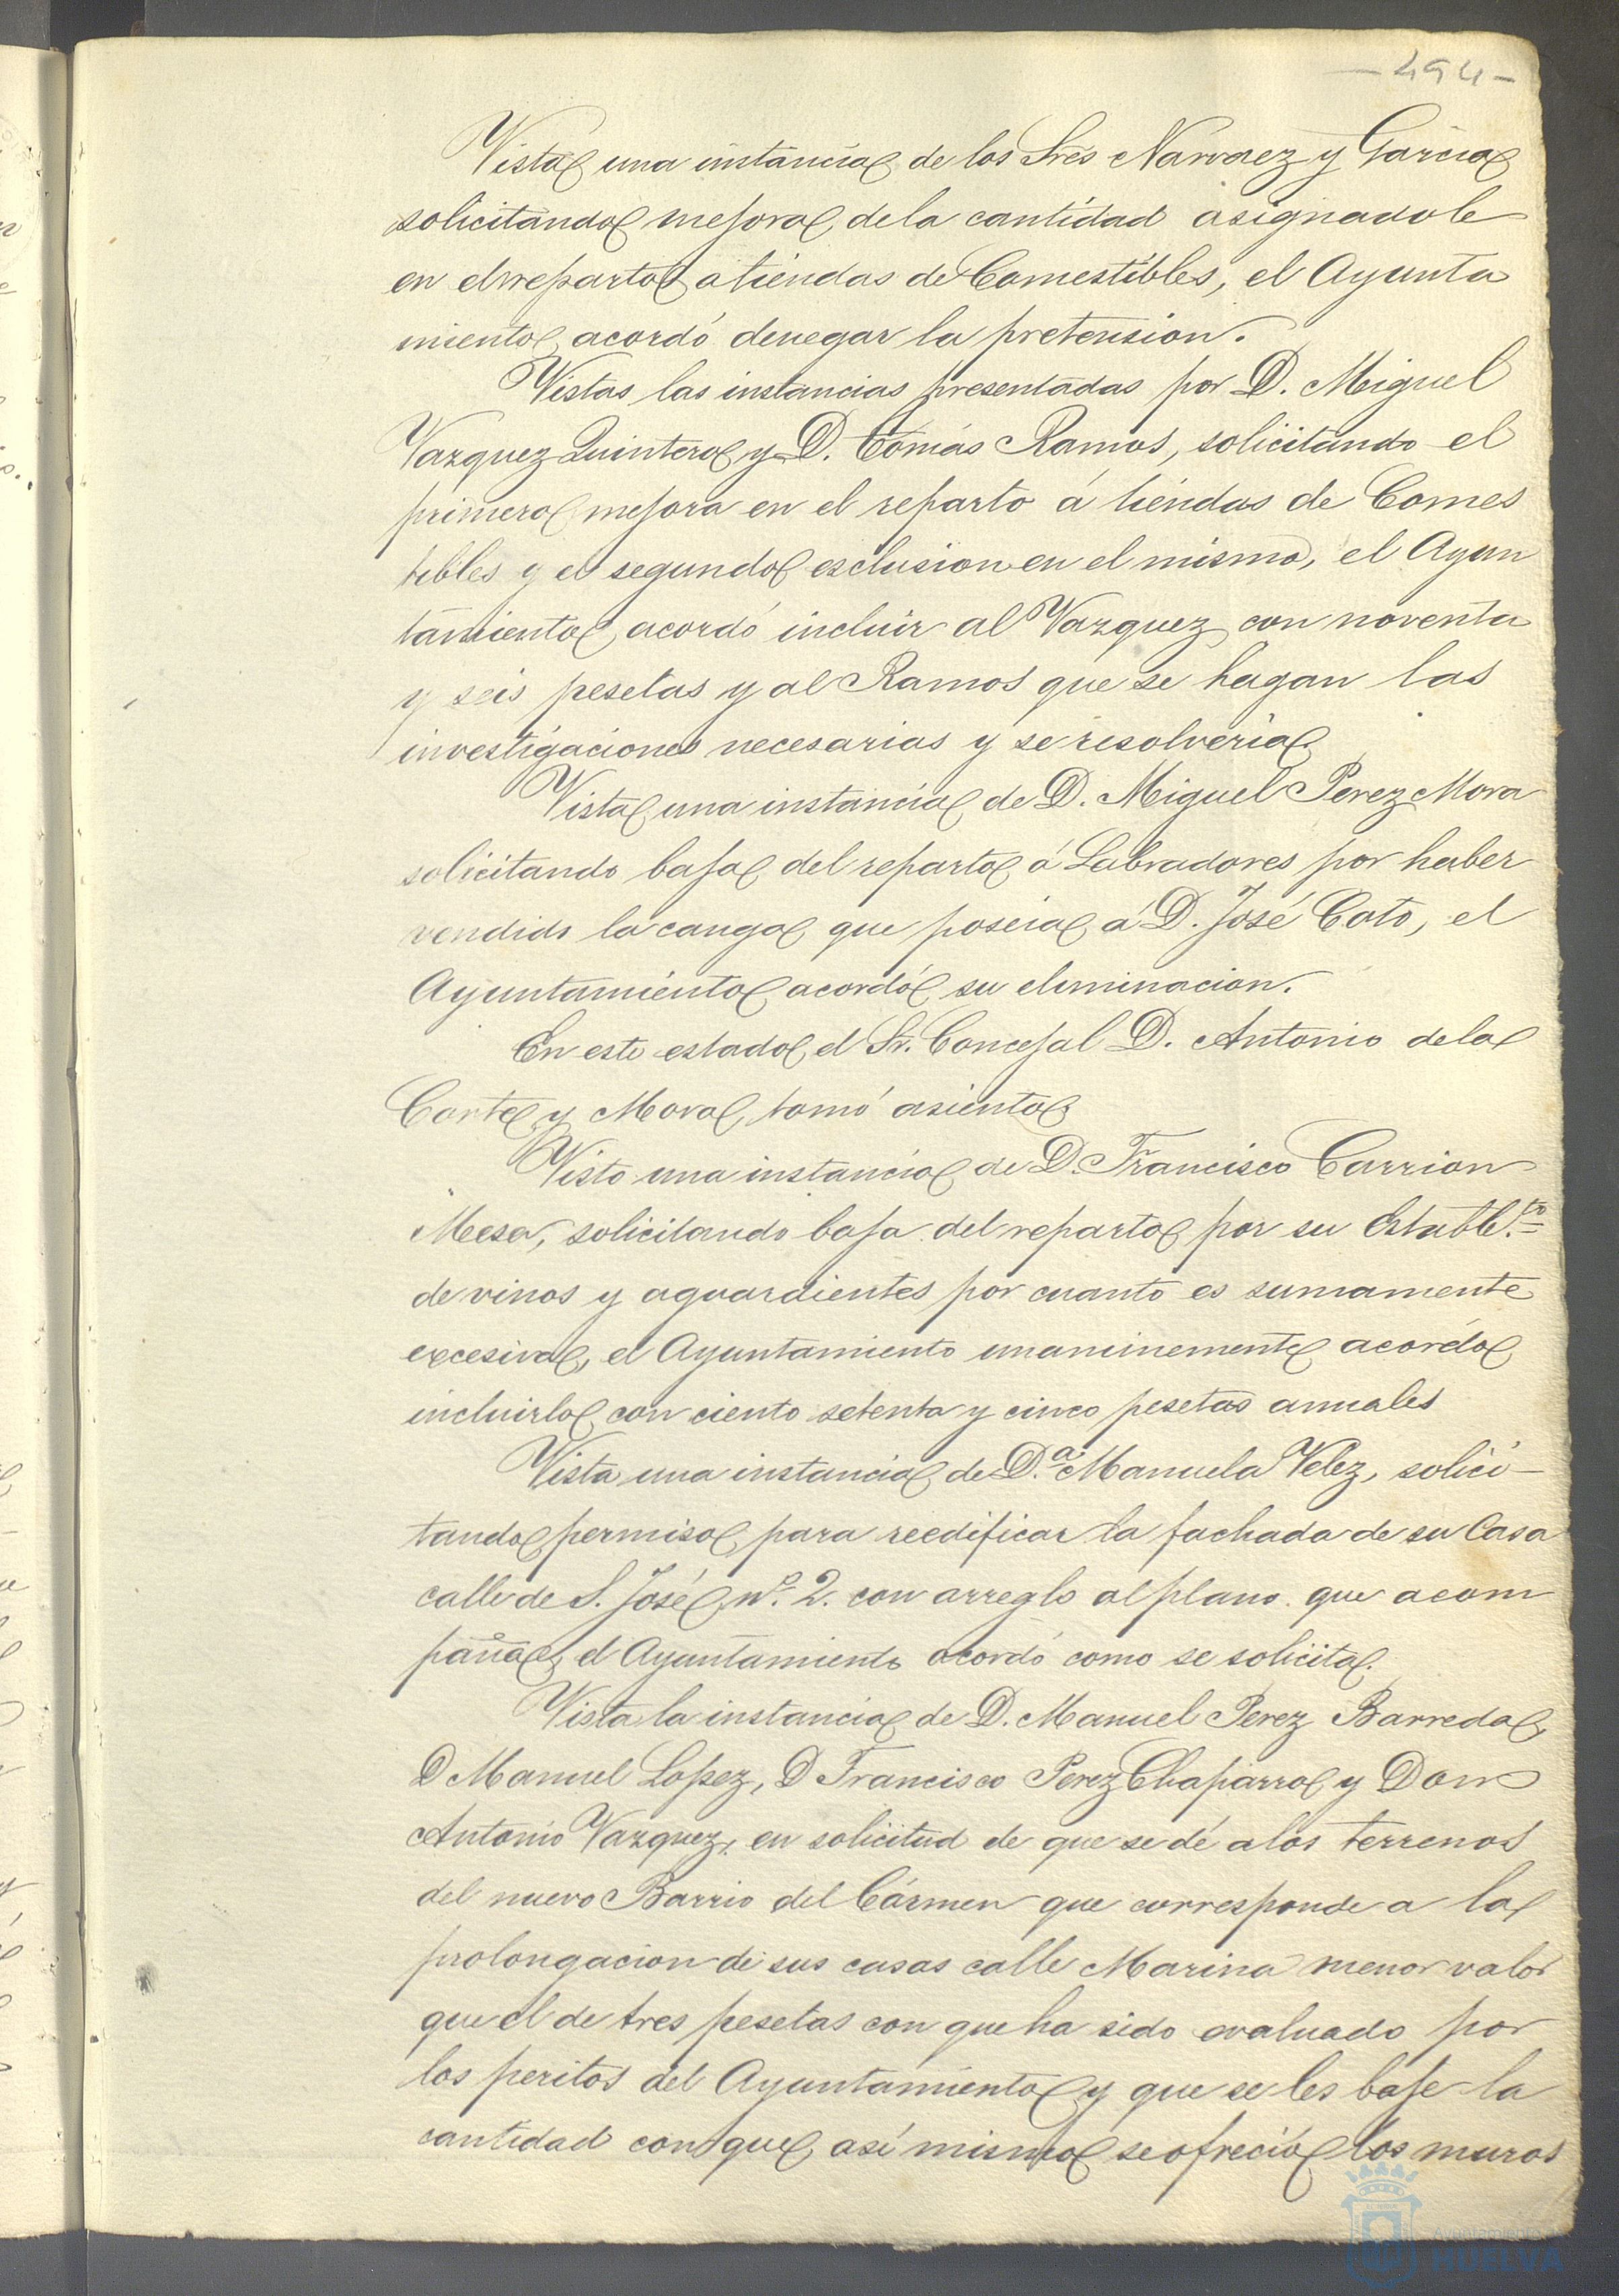 - 494 -
Vista una instancia de los Sres Narvaez y Garcia
solicitando mejora de la cantidad asignadole
en el reparto a tiendas de Comestibles, el Ayunta
miento acordó denegar la pretension.
Vistas las instancias presentadas por D. Miguel
Vazquez Quintero y D. Tomás Ramos, solicitando el
primero mejora en el reparto á tiendas de Comes
tibles y el segundo esclusion en el mismo, el Ayun
tamiento acordó incluir al Vazquez con noventa
y seis pesetas y al Ramos que se hagan las
investigaciones necesarias y se resolveria.
Vista una instancia de D. Miguel Perez Mora
solicitando baja del reparto á Labradores por haber
vendido la canga que poseia á D. José Coto, el
Ayuntamiento acordó su eliminacion.
En este estado el Sr. Concejal D. Antonio de la
Corte y Mora, tomó asiento
Visto una instancia de D. Francisco Carrion
Meesa, solicitando baja del reparto por su Estable.to
de vinos y aguardientes por cuanto es sumamente
excesiva, el Ayuntamiento unanimemente acordó
incluirlo con ciento setenta y cinco pesetas anuales
Vista una instancia de D.a Manuela Velez, solici-
tando permiso para reedificar la fachada de su Casa
calle de S. José nº. 2. con arreglo al plano que acom
paña, el Ayuntamiento acordó como se solicita.
Vista la instancia de D. Manuel Perez Barreda,
D Manuel Lopez, D Francisco Perez Chaparro y Don
Antonio Vazquez, en solicitud de que se dé a los terrenos
del nuevo Barrio del Cármen que corresponde a la
prolongacion de sus casas calle Marina menor valor
que el de tres pesetas con que ha sido evaluado por
los peritos del Ayuntamiento y que se les baje la
cantidad con que así mismo se ofreció los muros
Ayuntamiento
HUELVA